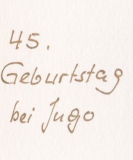 45.
Geburtstag
bei Jugo